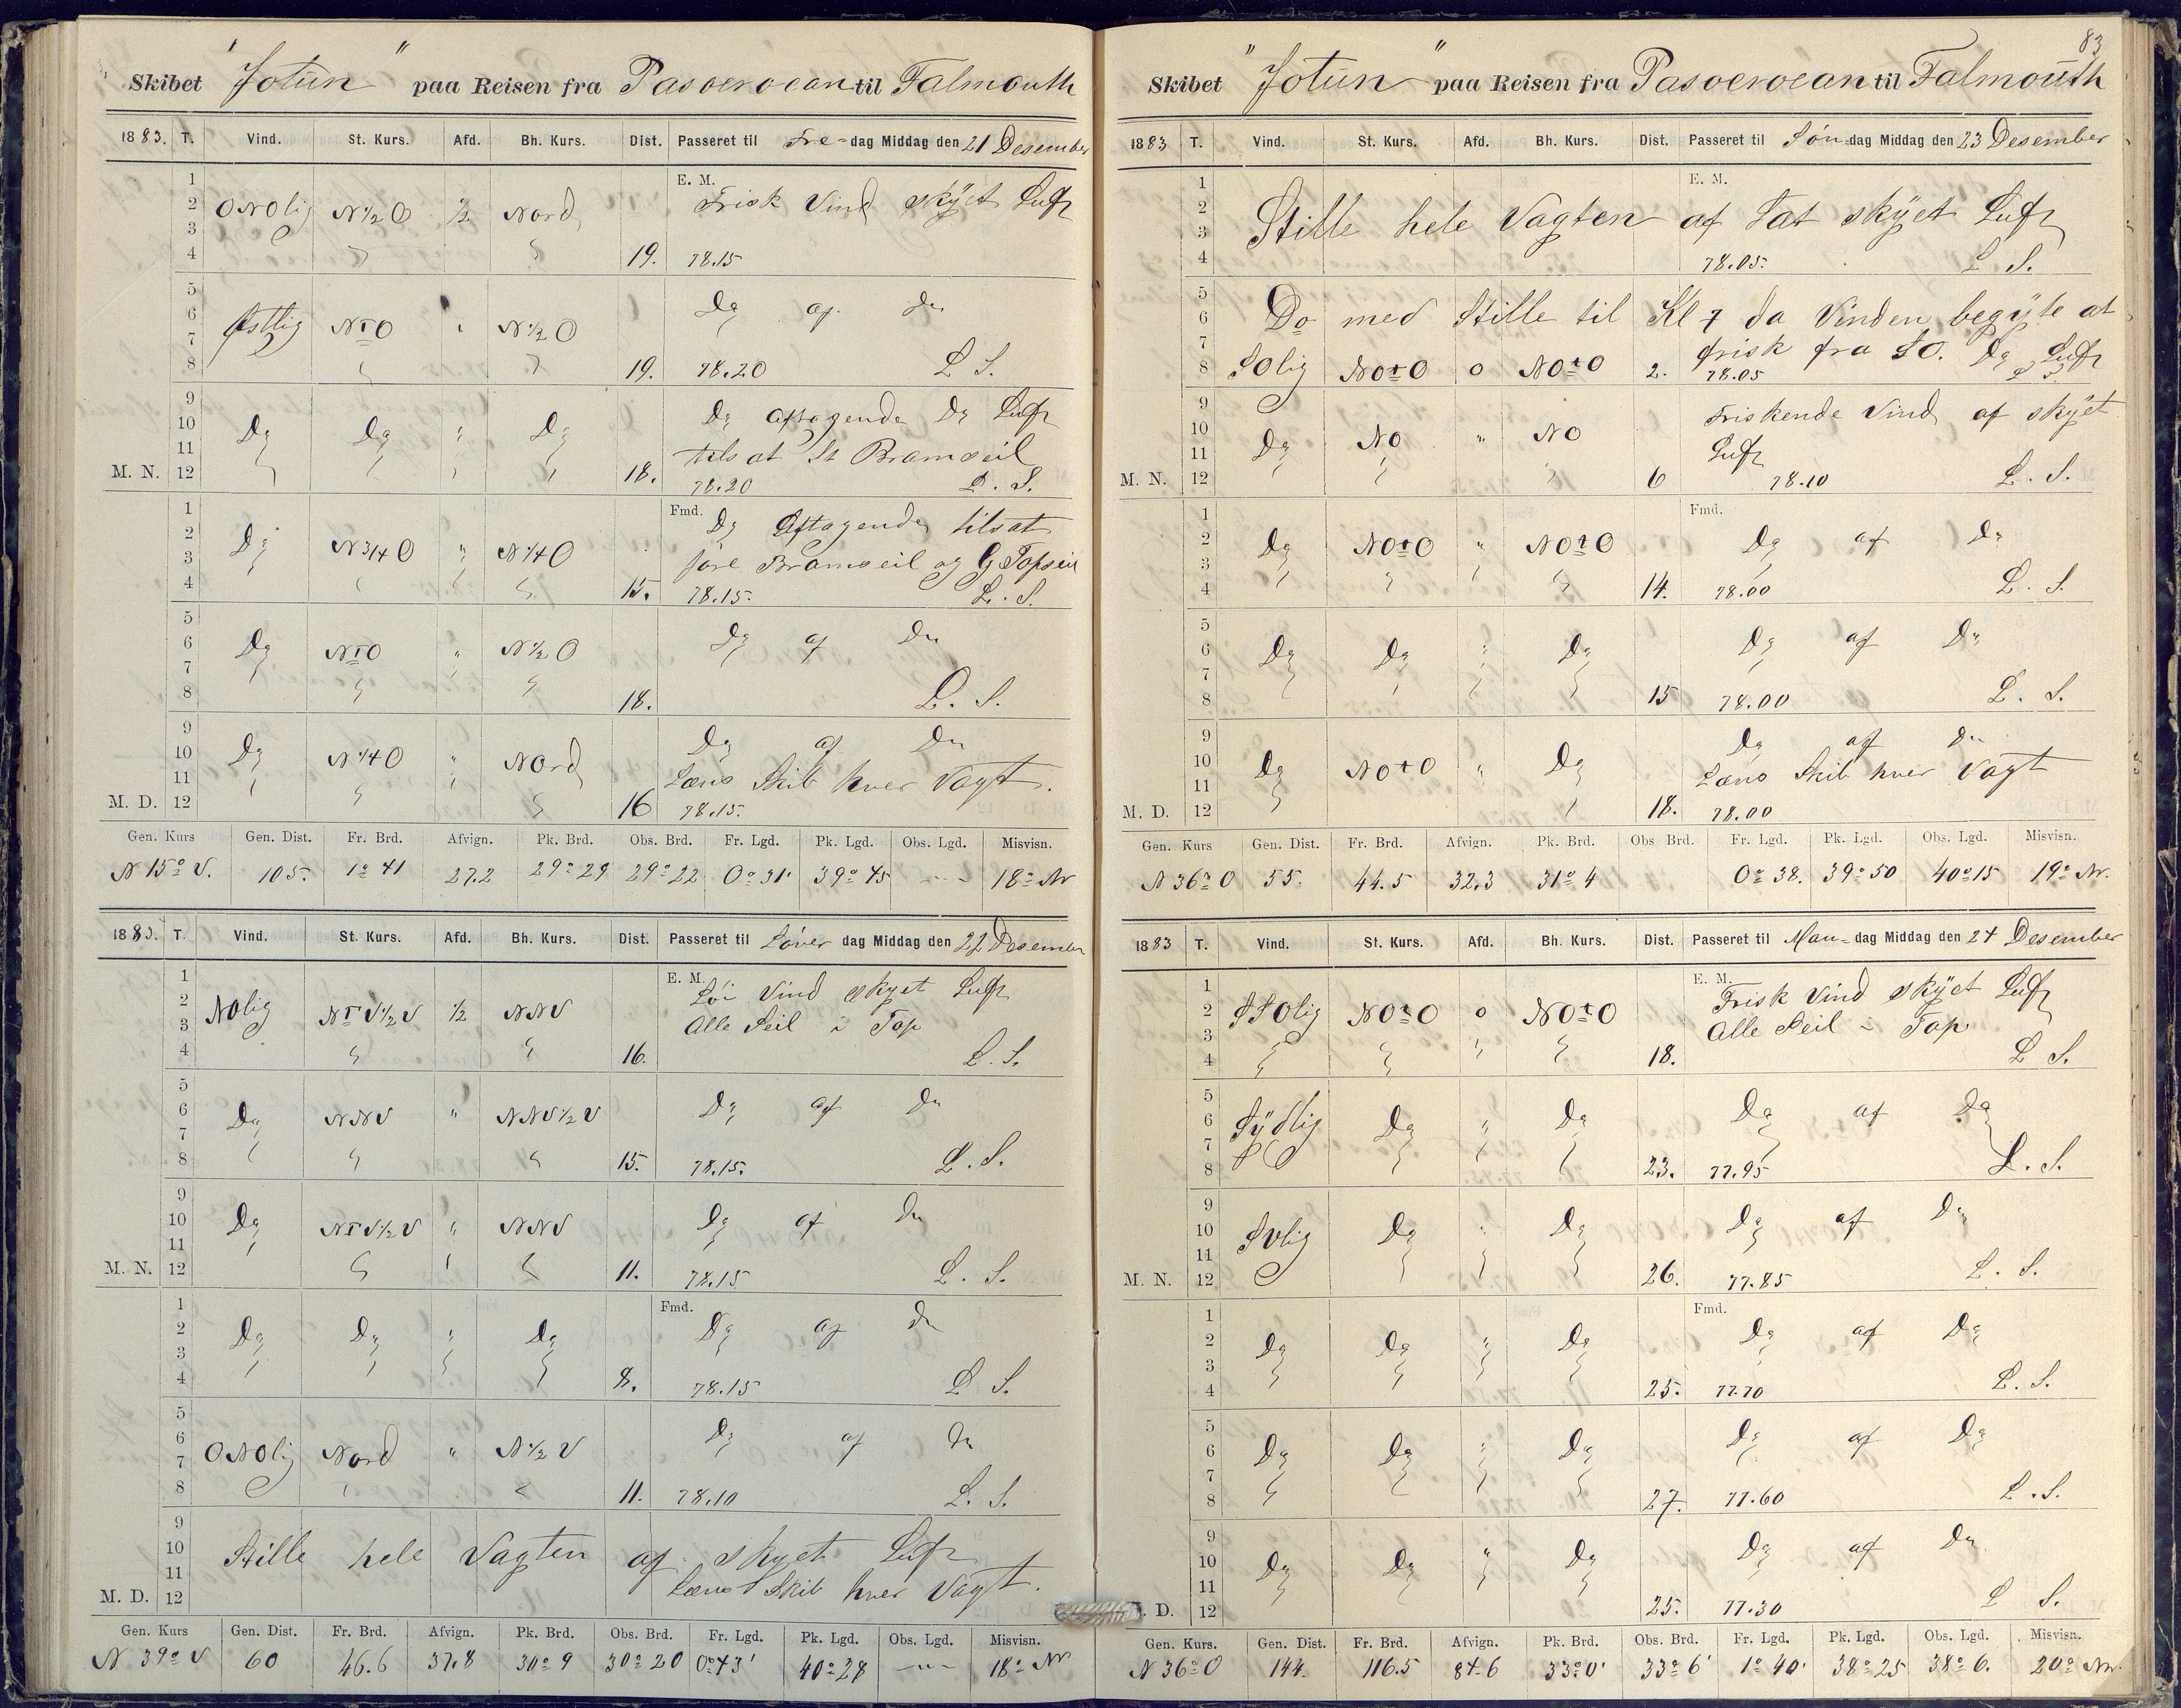 Skibet "Jotun" paa Reisen fra Pasoeroean til Falmouth
1883. T. Vind. St. Kurs. Afd. Bh. Kurs. Dist. Passeret til Fre-dag Middag den 21 Desember
1
E. M.
2 ONOlig N 1/2 O 1/2 Nord Frisk Vind skyet Luft
3
4 " " 19. 78.15
5
6 Østlig N t O " N 1/2 O Do af Do
7
8 " " 19. 78.20 L. S.
9
10 Do Do " Do Do Aftagende Do Luft
11 tilsat St Bramseil
M. N. 12 " " " " 18. 78.20 L. S.
1
Fmd.
2 Do N 3/4 O " N 1/4 O Do Aftagende tilsat
3 føre Bramseil og G Topseil
4 " " " " 15. 78.15. L. S.
5
6 Do N t O " N 1/2 O Do af Do
7
8 " " " 18. L. S.
9
10 Do N 1/4 O " Nord Do af Do
11 Læns Skib hver Vagt.
M. D. 12 " " " 16 78.15.
Gen. Kurs Gen. Dist. Fr. Brd. Afvign. Pk. Brd. Obs. Brd. Fr. Lgd. Pk. Lgd. Obs. Lgd. Misvisn.
N 15° V. 105. 1° 41 27.2 29° 29 29° 22 0° 31' 39° 45 - " - 18° NV
1883. T. Vind. St. Kurs. Afd. Bh. Kurs. Dist. Passeret til Løver dag Middag den 22 Desember
1
E. M.
2 NOlig N t V 1/2 V 1/2 NNV Lør Vind skyet Luft
3 Alle Seil i Top
4 " " 16. L. S.
5
6 Do NNV " NNV 1/2 V Do af Do
7
8 " " " 15. 78.15. L. S.
9
10 Do N t V 1/2 V " NNV Do af Do
11
M. N. 12 " " " 11. 78.15 L. S.
1
Fmd.
2 Do Do " Do Do af Do
3
4 " " " " 8. 78.15 L. S.
5
6 ONOlig Nord " N 1/2 V Do af Do
7
8 " " 11. 78.10 L. S.
9
10 Stille hele Vagten af skyet Luft
11 Læns Skib hver Vagt.
M. D. 12
Gen. Kurs Gen. Dist. Fr. Brd. Afvign. Pk. Brd. Obs. Brd. Fr. Lgd. Pk. Lgd. Obs. Lgd. Misvisn.
N 39° V 60 46.6 37.8 30° 9 30° 20 0° 43' 40° 28 - " - 18° NV
83
Skibet "Jotun" paa Reisen fra Pasoeroean til Falmouth
1883 T. Vind. St. Kurs. Afd. Bh. Kurs. Dist. Passeret til Søn-dag Middag den 23 Desember
1
E. M.
2 Stille hele Vagten af Læt skyet Luft
3
4 78.05. L. S.
5
6 Do med Stille til Kl 7 da Vinden begyte at
7 frisk fra SO. Do Luft
8 SOlig NO t O o NO t O 2. 78.05 L. S.
9
Friskende Vind af skyet
10 Do NO " NO
11 Luft
M. N. 12 " " 6 78.10 L. S.
1
Fmd.
2 Do NO t O " NO t O Do af Do
3
4 " " " " 14. 78.00 L. S.
5
6 Do Do " Do Do af Do
7
8 " " " " 15 78.00 L. S.
9
10 Do NO t O " Do Do af Do
11 Læns Skib hver Vagt
M. D. 12 " " 18. 78.00
Gen. Kurs Gen. Dist. Fr. Brd. Afvign. Pk. Brd. Obs Brd. Fr. Lgd. Pk. Lgd. Obs. Lgd. Misvisn.
N 36° O 55. 44.5 32.3 31° 4 0° 38. 39° 50 40° 15 19° NV.
1883 T. Vind. St. Kurs. Afd. Bh. Kurs. Dist. Passeret til Man-dag Middag den 24 Desember
1
E. M.
2 SSOlig NO t O o NO t O Frisk Vind skyet Luft
3 Alle Seil i Top
4 " " " " 18. L. S.
5
6 Sydlig Do " Do Do af Do
7
8 " " " 23. 77.95 L. S.
9
10 SVlig Do " Do Do af Do
11
M. N. 12 " " " 26. 77.85 L. S.
1
Fmd.
2 Do Do " Do Do af Do
3
4 " " " " 25. 77.70 L. S.
5
6 Do Do " Do Do af Do
7
8 " " " " 27. 77.60 L. S.
9
10 Do Do " Do Do af Do
11
D. 12 " " " " 25. 77.30 L S.
Gen. Kurs. Gen. Dist. Fr. Brd. Afvign. Pk. Brd. Obs. Brd. Fr. Lgd. Pk. Lgd. Obs. Lgd. Misvisn.
N 36° O 144. 116.5 84.6 33° 0' 33° 6' 1° 40' 38° 25 38° 6. 20° NV.